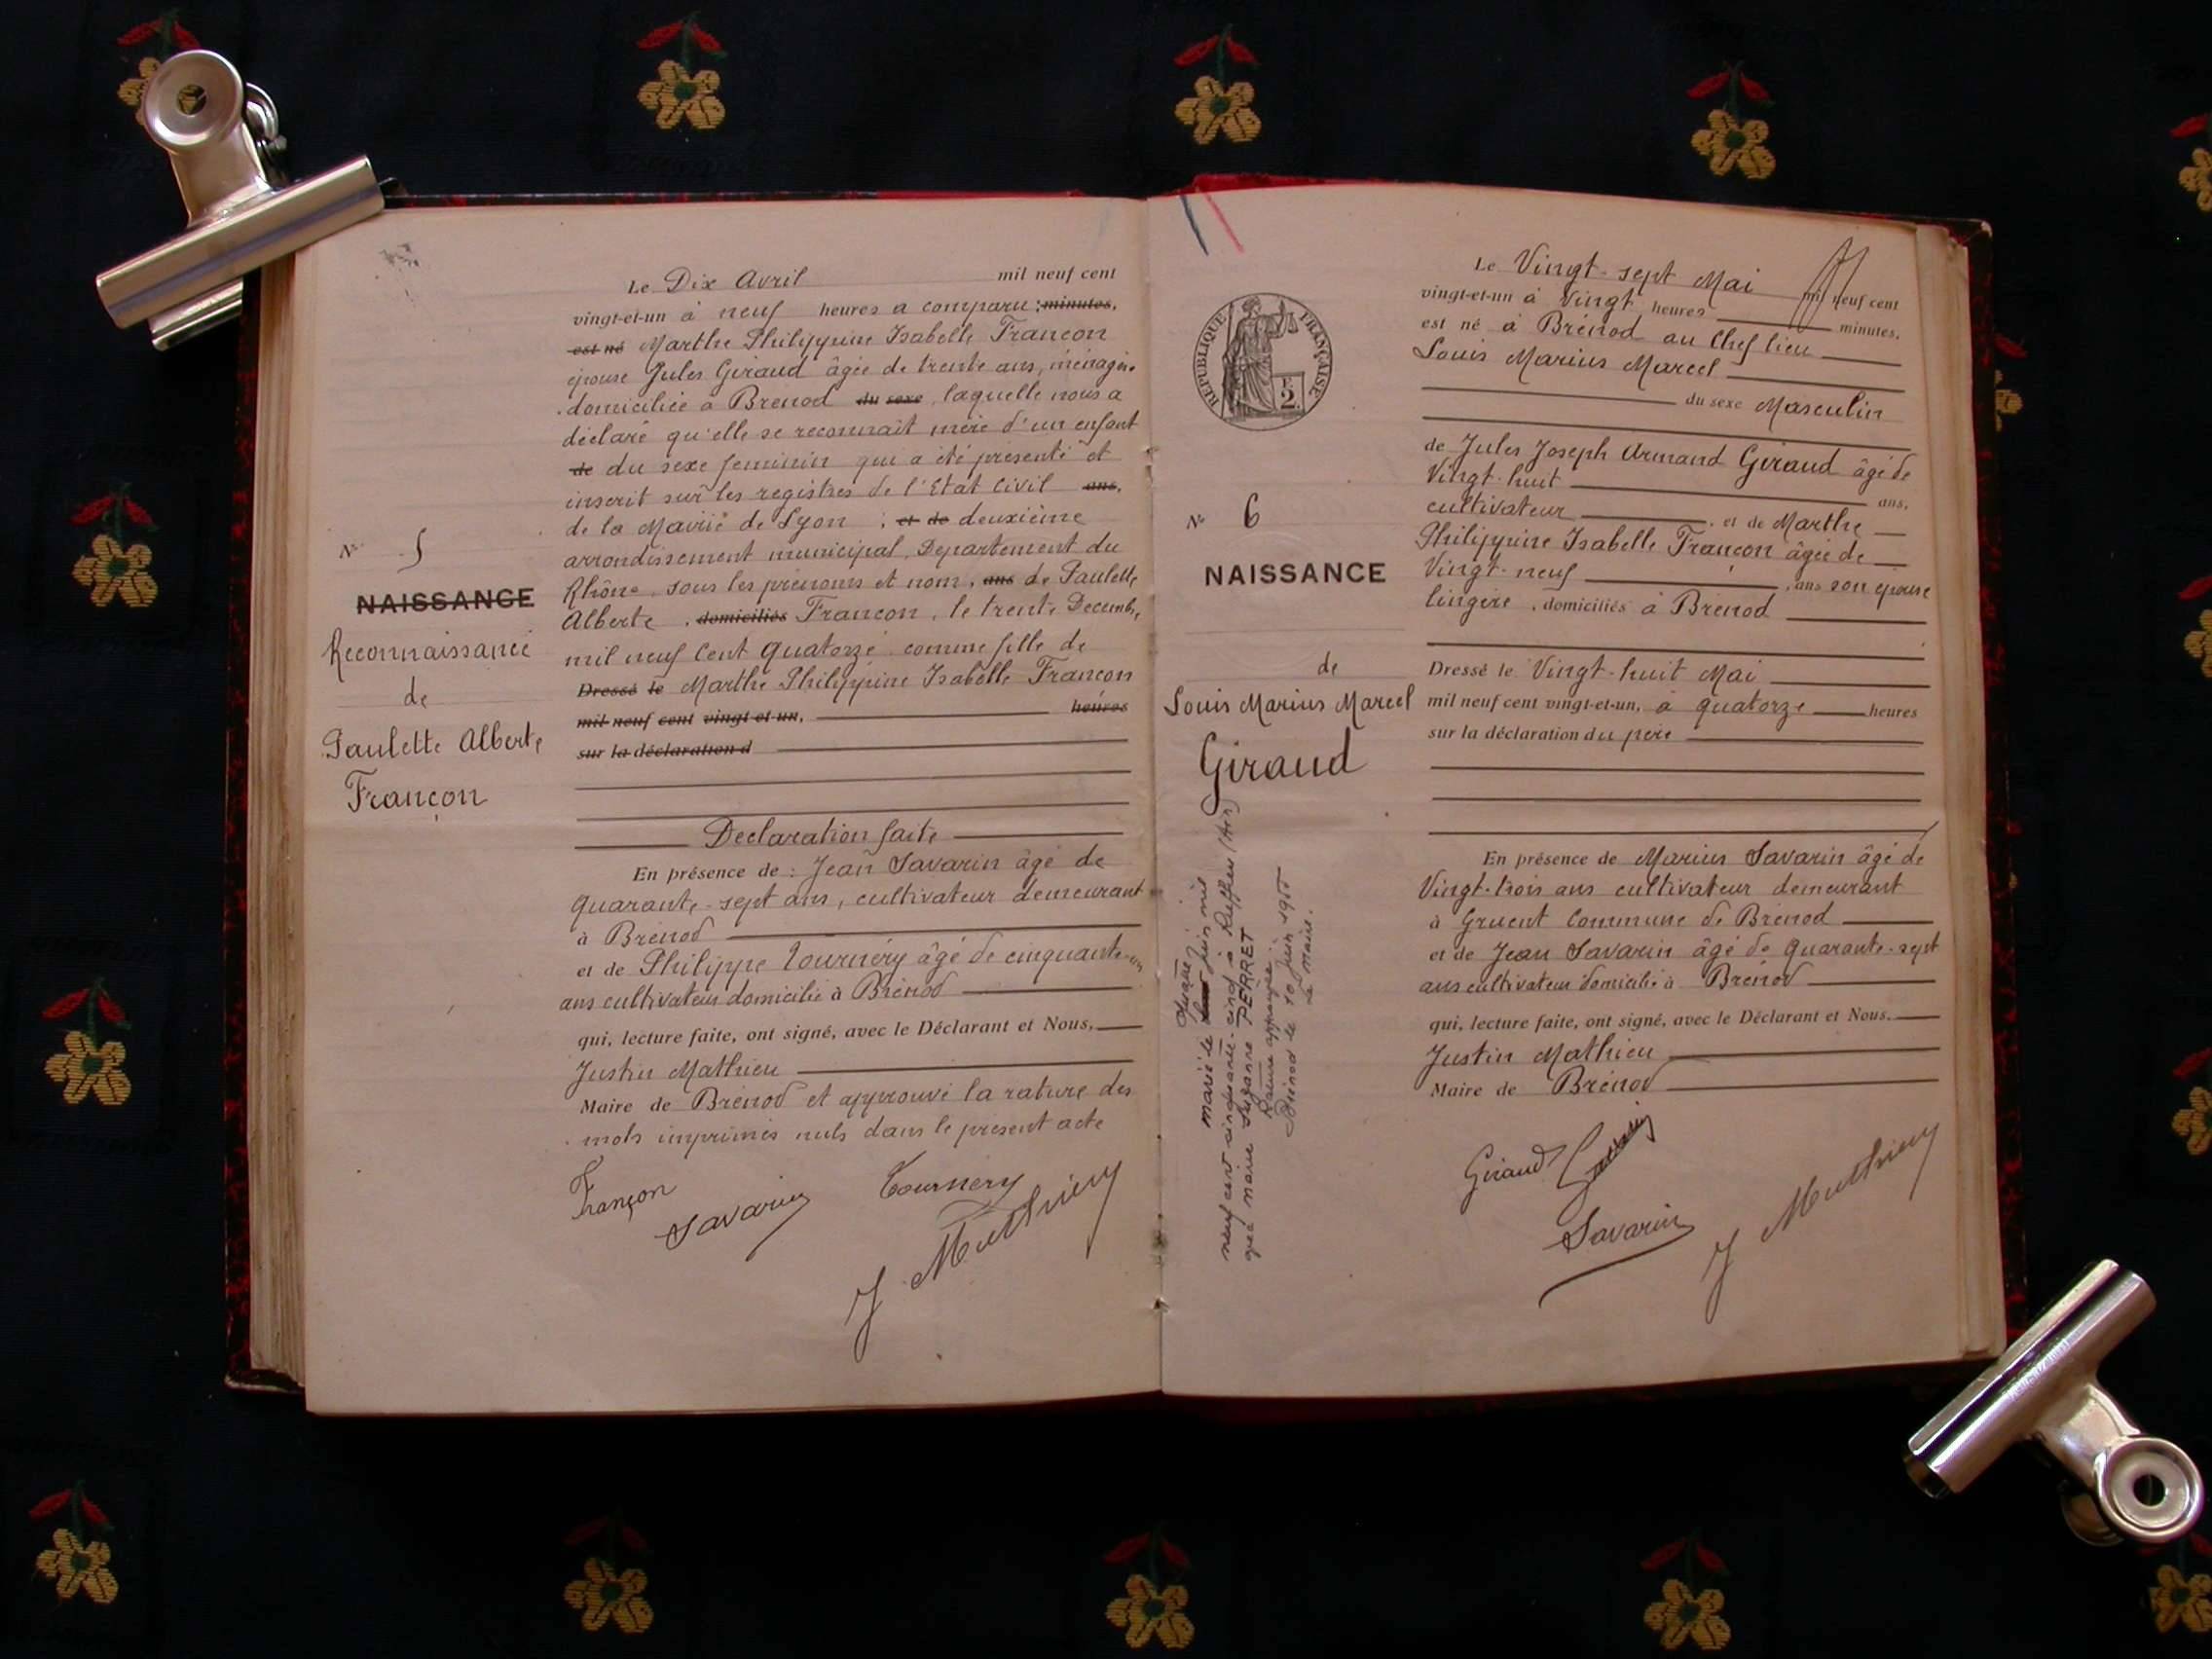 Le Dix Avril mil neuf cent
vingt-et-un à neuf heures a comparu : minutes,
est né Marthe Philippine Isabelle Françon
épouse Jules Giraud âgée de trente ans, ménagère
domiciliée à Brénod du sexe, laquelle nous a
déclaré qu'elle se reconnait mère d'un enfant
de du sexe féminin qui a été présenté et
inscrit sur les registres de l'Etat Civil ans,
de la Mairie de Lyon ; et de deuxième
arrondissement municipal, Département du
Rhône, sous les prénoms et nom, ans de Paulette
Alberte, domiciliés Françon, le trente Décembre
mil neuf Cent quatorze comme fille de
Dressé le Marthe Philippine Isabelle Françon
mil neuf cent vingt-et-un, heures
sur la déclaration d
N° 5
NAISSANCE
Reconnaissance
de
Paulette Alberte
Françon
Déclaration faite
En présence de : Jean Savarin âgé de
quarante-sept ans, cultivateur demeurant
à Brénod
et de Philippe Tournéry âgé de cinquante-un
ans cultivateur domicilié à Brénod
qui, lecture faite, ont signé, avec le Déclarant et Nous,
Justin Mathieu
Maire de Brénod et approuvé la rature des
mots imprimés nuls dans le présent acte
Françon
Savarin
Tournery
J Mathieu
REPUBLIQUE FRANÇAISE
2
Le Vingt-sept Mai mil neuf cent
vingt-et-un à Vingt heures minutes,
est né à Brénod au Chef lieu
Louis Marius Marcel
du sexe Masculin
de Jules Joseph Armand Giraud âgé de
Vingt-huit ans,
cultivateur, et de Marthe
Philippine Isabelle Françon âgée de
Vingt-neuf, ans son épouse
lingère, domiciliés à Brénod
N° 6
NAISSANCE
de
Louis Marius Marcel
Giraud
Dressé le Vingt-huit Mai
mil neuf cent vingt-et-un, à quatorze heures
sur la déclaration du père
En présence de Marius Savarin âgé de
Vingt-trois ans cultivateur demeurant
à Gruent Commune de Brénod
et de Jean Savarin âgé de quarante-sept
ans cultivateur domicilié à Brénod
qui, lecture faite, ont signé, avec le Déclarant et Nous,
Justin Mathieu
Maire de Brénod
Giraud
Savarin
Savarin
J Mathieu
quatre
marié le juin mil
neuf cent cinquante-cinq à Ruffieu (Ain)
avec Marie Suzanne PERRET
Rature approuvée.
Brénod le 10 Juin 1955
Le maire.